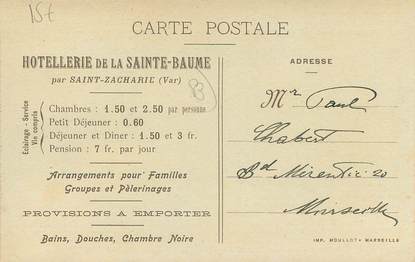 15t
CARTE POSTALE
HOTELLERIE DE LA SAINTE-BAUME
par SAINT-ZACHARIE (Var)
83
Eclairage - Service
Vin compris
Chambres : 1.50 et 2.50 par personne
Petit Déjeuner : 0.60
Déjeuner et Diner : 1.50 et 3 fr.
Pension : 7 fr. par jour
Arrangements pour Familles
Groupes et Pèlerinages
PROVISIONS A EMPORTER
Bains, Douches, Chambre Noire
ADRESSE
Mr Paul
Chabert
Bd Mérentié 20
Marseille
IMP. MOULLOT - MARSEILLE